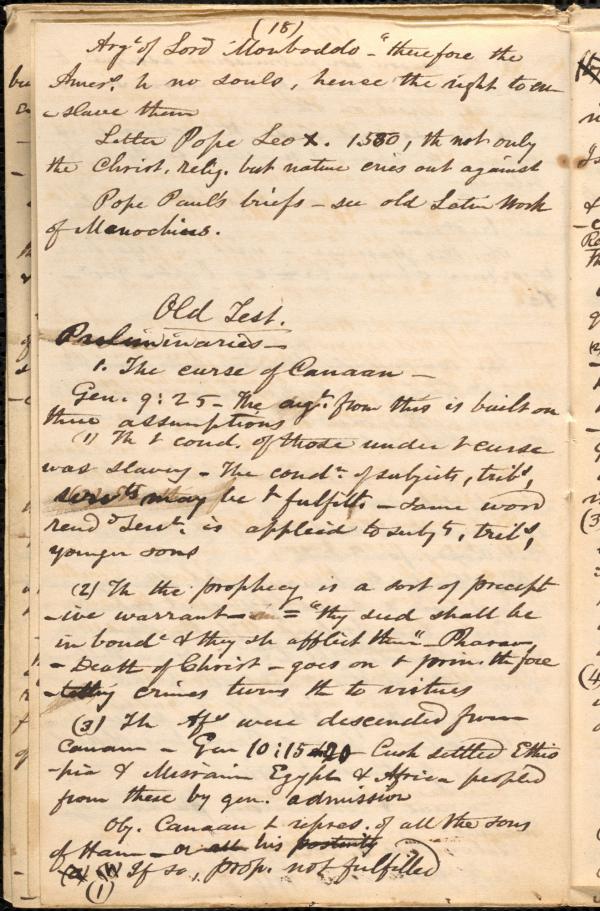 (18)
Argt of Lord Monboddo - "therefore the
Amers. h no souls, hence the right to en-
-slave them
Letter Pope Leo X. 1530, th not only
the Christ. relig. but nature cries out against
Pope Paul's briefs - see old Latin work
of Menochius.
Old Test.
Preliminaries -
1. The curse of Canaan -
Gen. 9:25 - The argt. from this is built on
three assumptions
(1) Th t cond. of those under t curse
was slavery - The condn. of subjects, tribs,
servts may be t fulfillt. - same word
rendd servt. is applied to subjts, tribs,
younger sons
(2) Th the prophecy is a sort of precept
-ive warrant - = "thy seed shall be
in bondg & they sh afflict them" - Pharao
- Death of Christ - goes on t prin. th fore
-telling crimes turns th to virtues
(3) Th Afs were descended from
Canaan - Gen 10:15-20 - Cush settled Ethio
-pia & Misraim Egypt & Africa peopled
from these by gen. admission
Obj. Canaan t repres. of all the sons
of Ham - or all his posterity
(1) If so, prop. not fulfilled